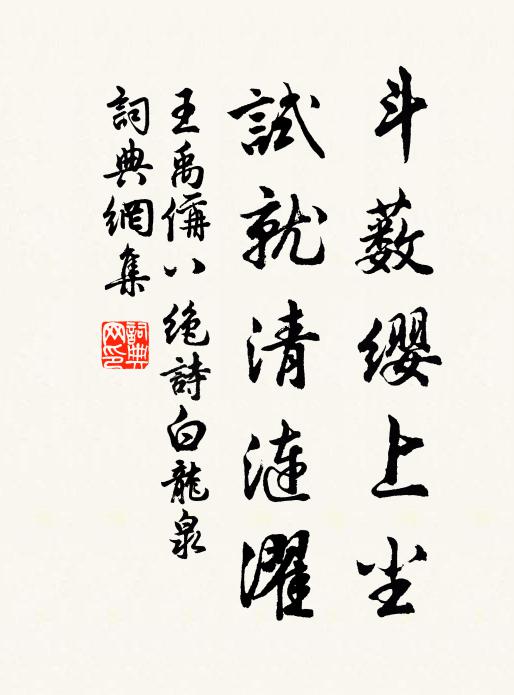 斗藪纓上尘
試就清漣濯
王禹偁八绝詩白龍泉
詞典網集
詞典網印